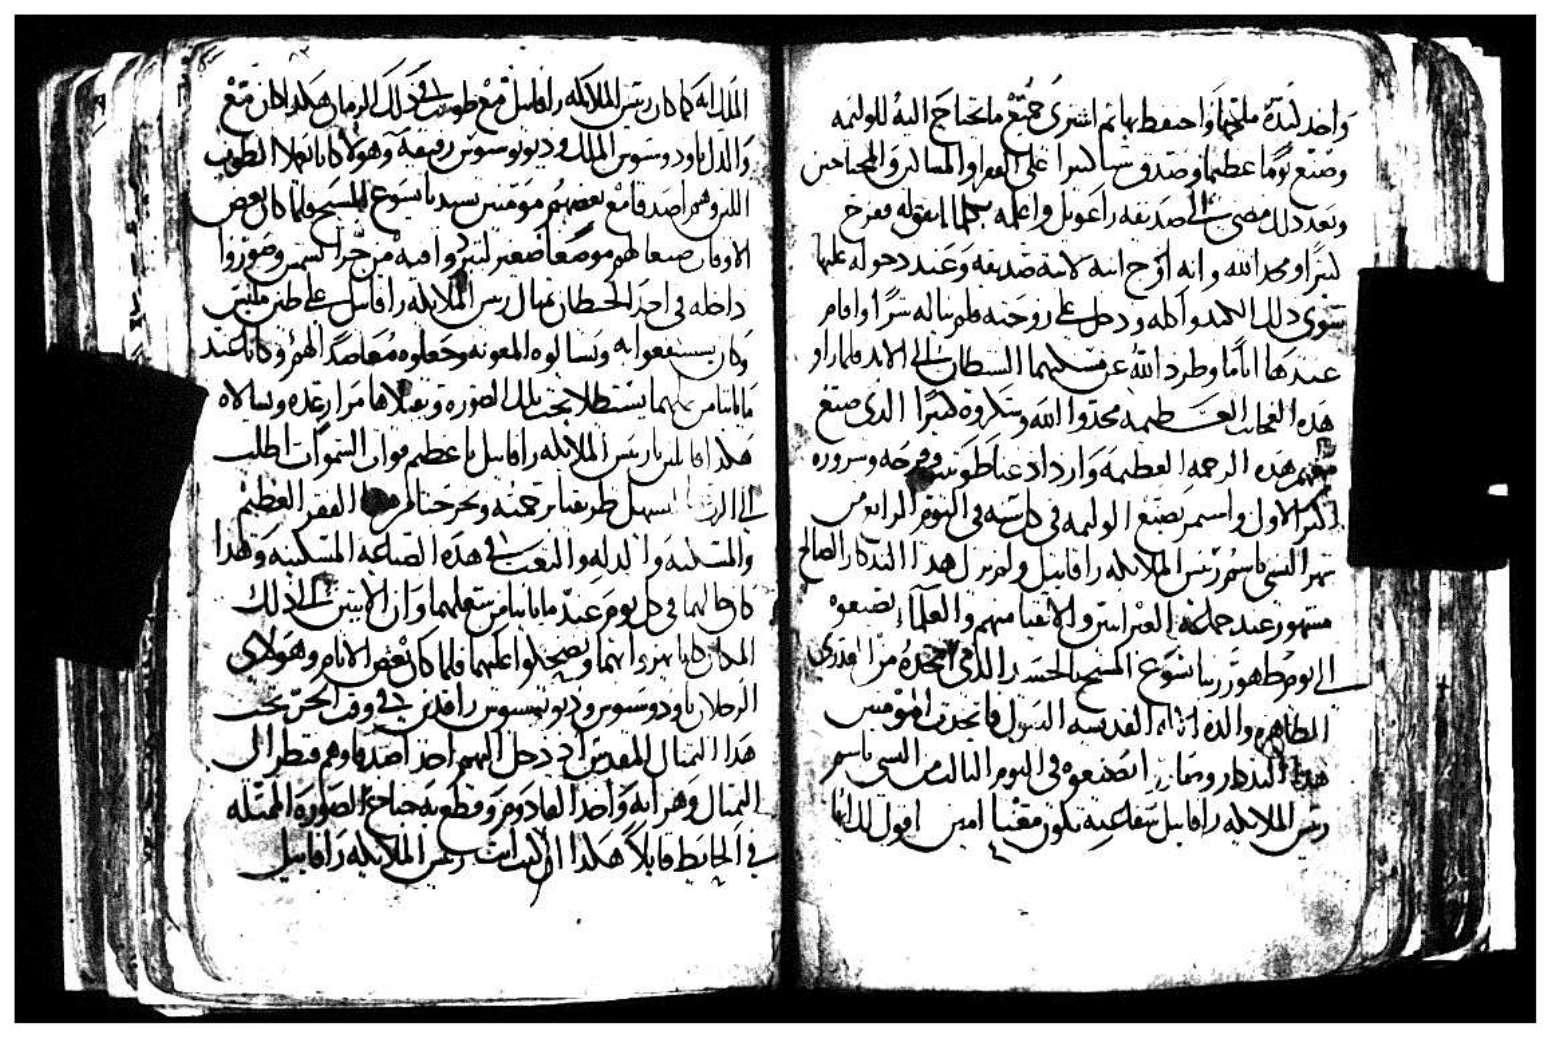 واخد لبدة ملحها واحتفظ بها تم اشترى جميع ما يحتاج اليه للوليمه
وصنع يوما عظيما وصدق شيا كتيرا على الفقرا والمساكين والمحتاجين
وبعد دلك مضى الى صديقه راعويل واعلمه بكلما اتفق له ففرح
كتيرا ومجد الله وانه ازوج ابنه لابنة صديقه وعند دخوله عليها
شوى دلك الكبد واكله ودخل على زوجته فلم يناله شرا واقام
عندها اياما وطرد الله عن مسكنهما الشيطان الى الابد فلما راو
هده العجايب العظيمه مجدوا الله وشكروه كتيرا الدى صنع
معهم هده الرحمه العظيمه وازداد غنا طوبيت وفرحه وسروره
اكتر الاول واستمر يصنع الوليمه في كل سنه في اليوم الرابع من
شهر النسى باسم رييس الملايكه رافاييل ولم يزل هدا التدكار الصالح
مشهور عند جماعة العبرانيين والاتقيا منهم والعلما يصنعوه
الى يوم ظهور ربنا يسوع المسيح بالجسد الدى اتخده من العدرى
الطاهره والدة الاله القديسه البتول فاتخدت المومنين
هدا التدكار وصارا يصنعوه في اليوم التالت من النسى باسم
رييس الملايكه رافاييل شفاعته تكون معنا امين اقول لك ايها
الملك انه كما كان رييس الملايكه رافاييل مع طوبيت في دلك الزمان هكدا كان مع
والدك ياودوسيوس الملك وديونوسيوس رفيقه وهولا كانا يعملا الطوب
اللبن وهم اصدقا مع بعضهم مومنين بسيدنا يسوع المسيح فلما كان بعض
الاوقات صنعا لهم موضعا صغير ليتبردوا فيه من حر الشمس وصوروا
داخله في احد الحيطان تمتال رييس الملايكه رافاييل على طين ملبس
وكان يستشفعوا به ويسالوه المعونه وجعلوه معاضدا لهم وكانا عند
ما ياتيا من عملهما يستظلا تحت تلك الصوره ويقبلاها مرار عده ويسالاه
هكدا قايلين يا رييس الملايكه رافاييل يا عظيم قوات السموات اطلب
الى الرب يسهل طريقنا برحمته ويخرجنا من هدا الفقر العظيم
والمسكنه والدله والتعب في هده الصناعه المسكينه وهدا
كان حالهما في كل يوم عند ما ياتيا من شغلهما وان الاتين الى دلك
المكان كانا يهزوا بهما ويضحكوا عليهما فلما كان بعض الايام وهولاى
الرجلان ياودوسيوس وديونيسيوس راقدين في وقت الحر تحت
هدا التمتال المقدس اد دخل اليهم احد اصدقاوهم فنظر الى
التمتال وهزا به واخد القادوم وقطع به جناح الصوره الممتله
في الحايط قايلا هكدا ان كنت انت رييس الملايكه رافاييل